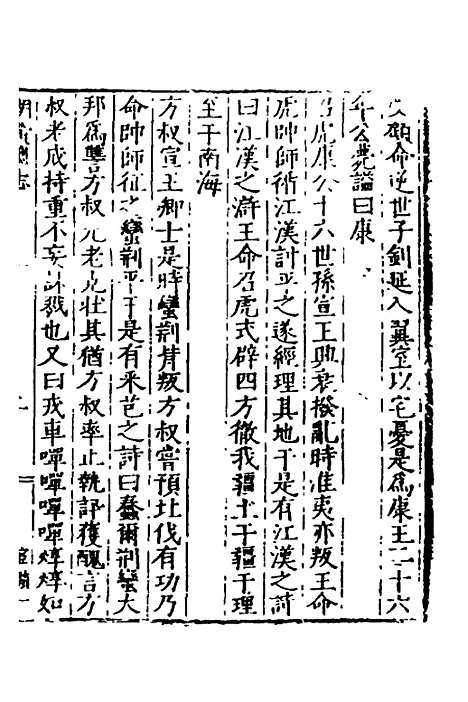 顧命逆世子釗延入翼室以宅憂是為康王二十六
年公薨諡曰康
召虎康公十六世孫宣王興衰撥亂時淮夷亦叛王命
虎帥師循江漢討平之遂經理其地于是有江漢之詩
曰江漢之滸王命召虎式辟四方徹我疆土于疆于理
至于南海
方叔宣王卿士是時蠻荆背叛方叔嘗預北伐有功乃
命帥師征之蠻荆平于是有采芑之詩曰蠢爾荆蠻大
邦為讐方叔元老克壯其猶方叔率止執訊獲醜言方
叔老成持重不妄訊戮也又曰戎車嘽嘽嘽嘽焞焞如
志